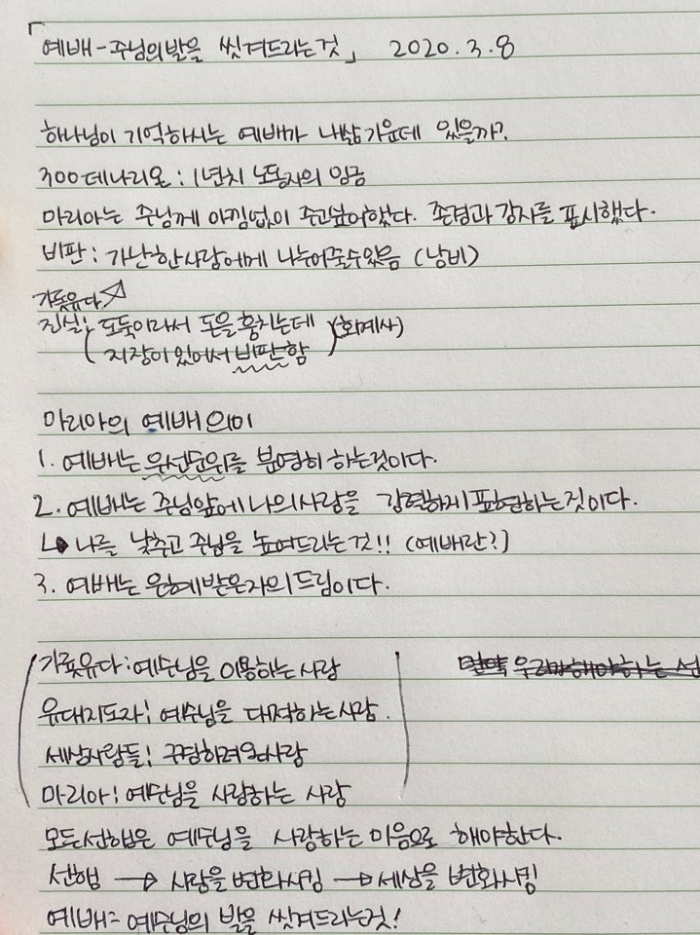 「예배-주님의발을 씻겨드리는것」 2020.3.8
하나님이 기억하시는 예배가 나의삶 가운데 있을까?
300데나리온 : 1년치 노동자의 임금
마리아는 주님께 아낌없이 주고싶어했다. 존경과 감사를 표시했다.
비판 : 가난한사람에게 나누어줄수있음 (낭비)
가룟유다
진실; 도둑이라서 돈을 훔치는데 (회계사)
지장이 있어서 비판함
마리아의 예배 의미
1. 예배는 우선순위를 분명히 하는것이다.
2. 예배는 주님앞에 나의사랑을 강력하게 표현하는것이다.
나를 낮추고 주님을 높여드리는것!! (예배란?)
3. 예배는 은혜받은자의 드림이다.
가룟유다:예수님을 이용하는 사람
유대지도자; 예수님을 대적하는사람.
세상사람들; 구경하려온사람
마리아; 예수님을 사랑하는 사람
모든선행은 예수님을 사랑하는 마음으로 해야한다.
선행 → 사람을 변화시킴 → 세상을 변화시킴
예배= 예수님의 발을 씻겨드리는것!